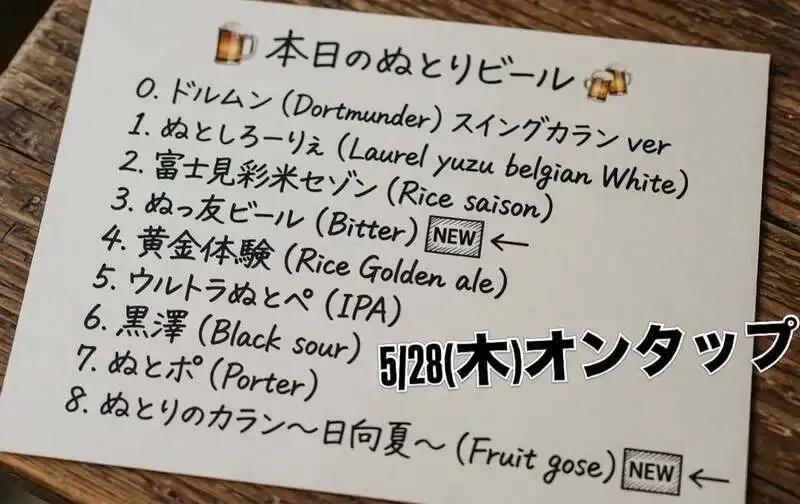 🍺本日のぬとりビール🍻
0. ドルムン (Dortmunder) スイングカラン ver
1. ぬとしろーりぇ (Laurel yuzu belgian White)
2. 富士見彩米セゾン (Rice saison)
3. ぬっ友ビール (Bitter) NEW ←
4. 黄金体験 (Rice Golden ale)
5. ウルトラぬとペ (IPA)
6. 黒澤 (Black sour)
7. ぬとポ (Porter)
5/28(木)オンタップ
8. ぬとりのカラン〜日向夏〜 (Fruit gose) NEW ←